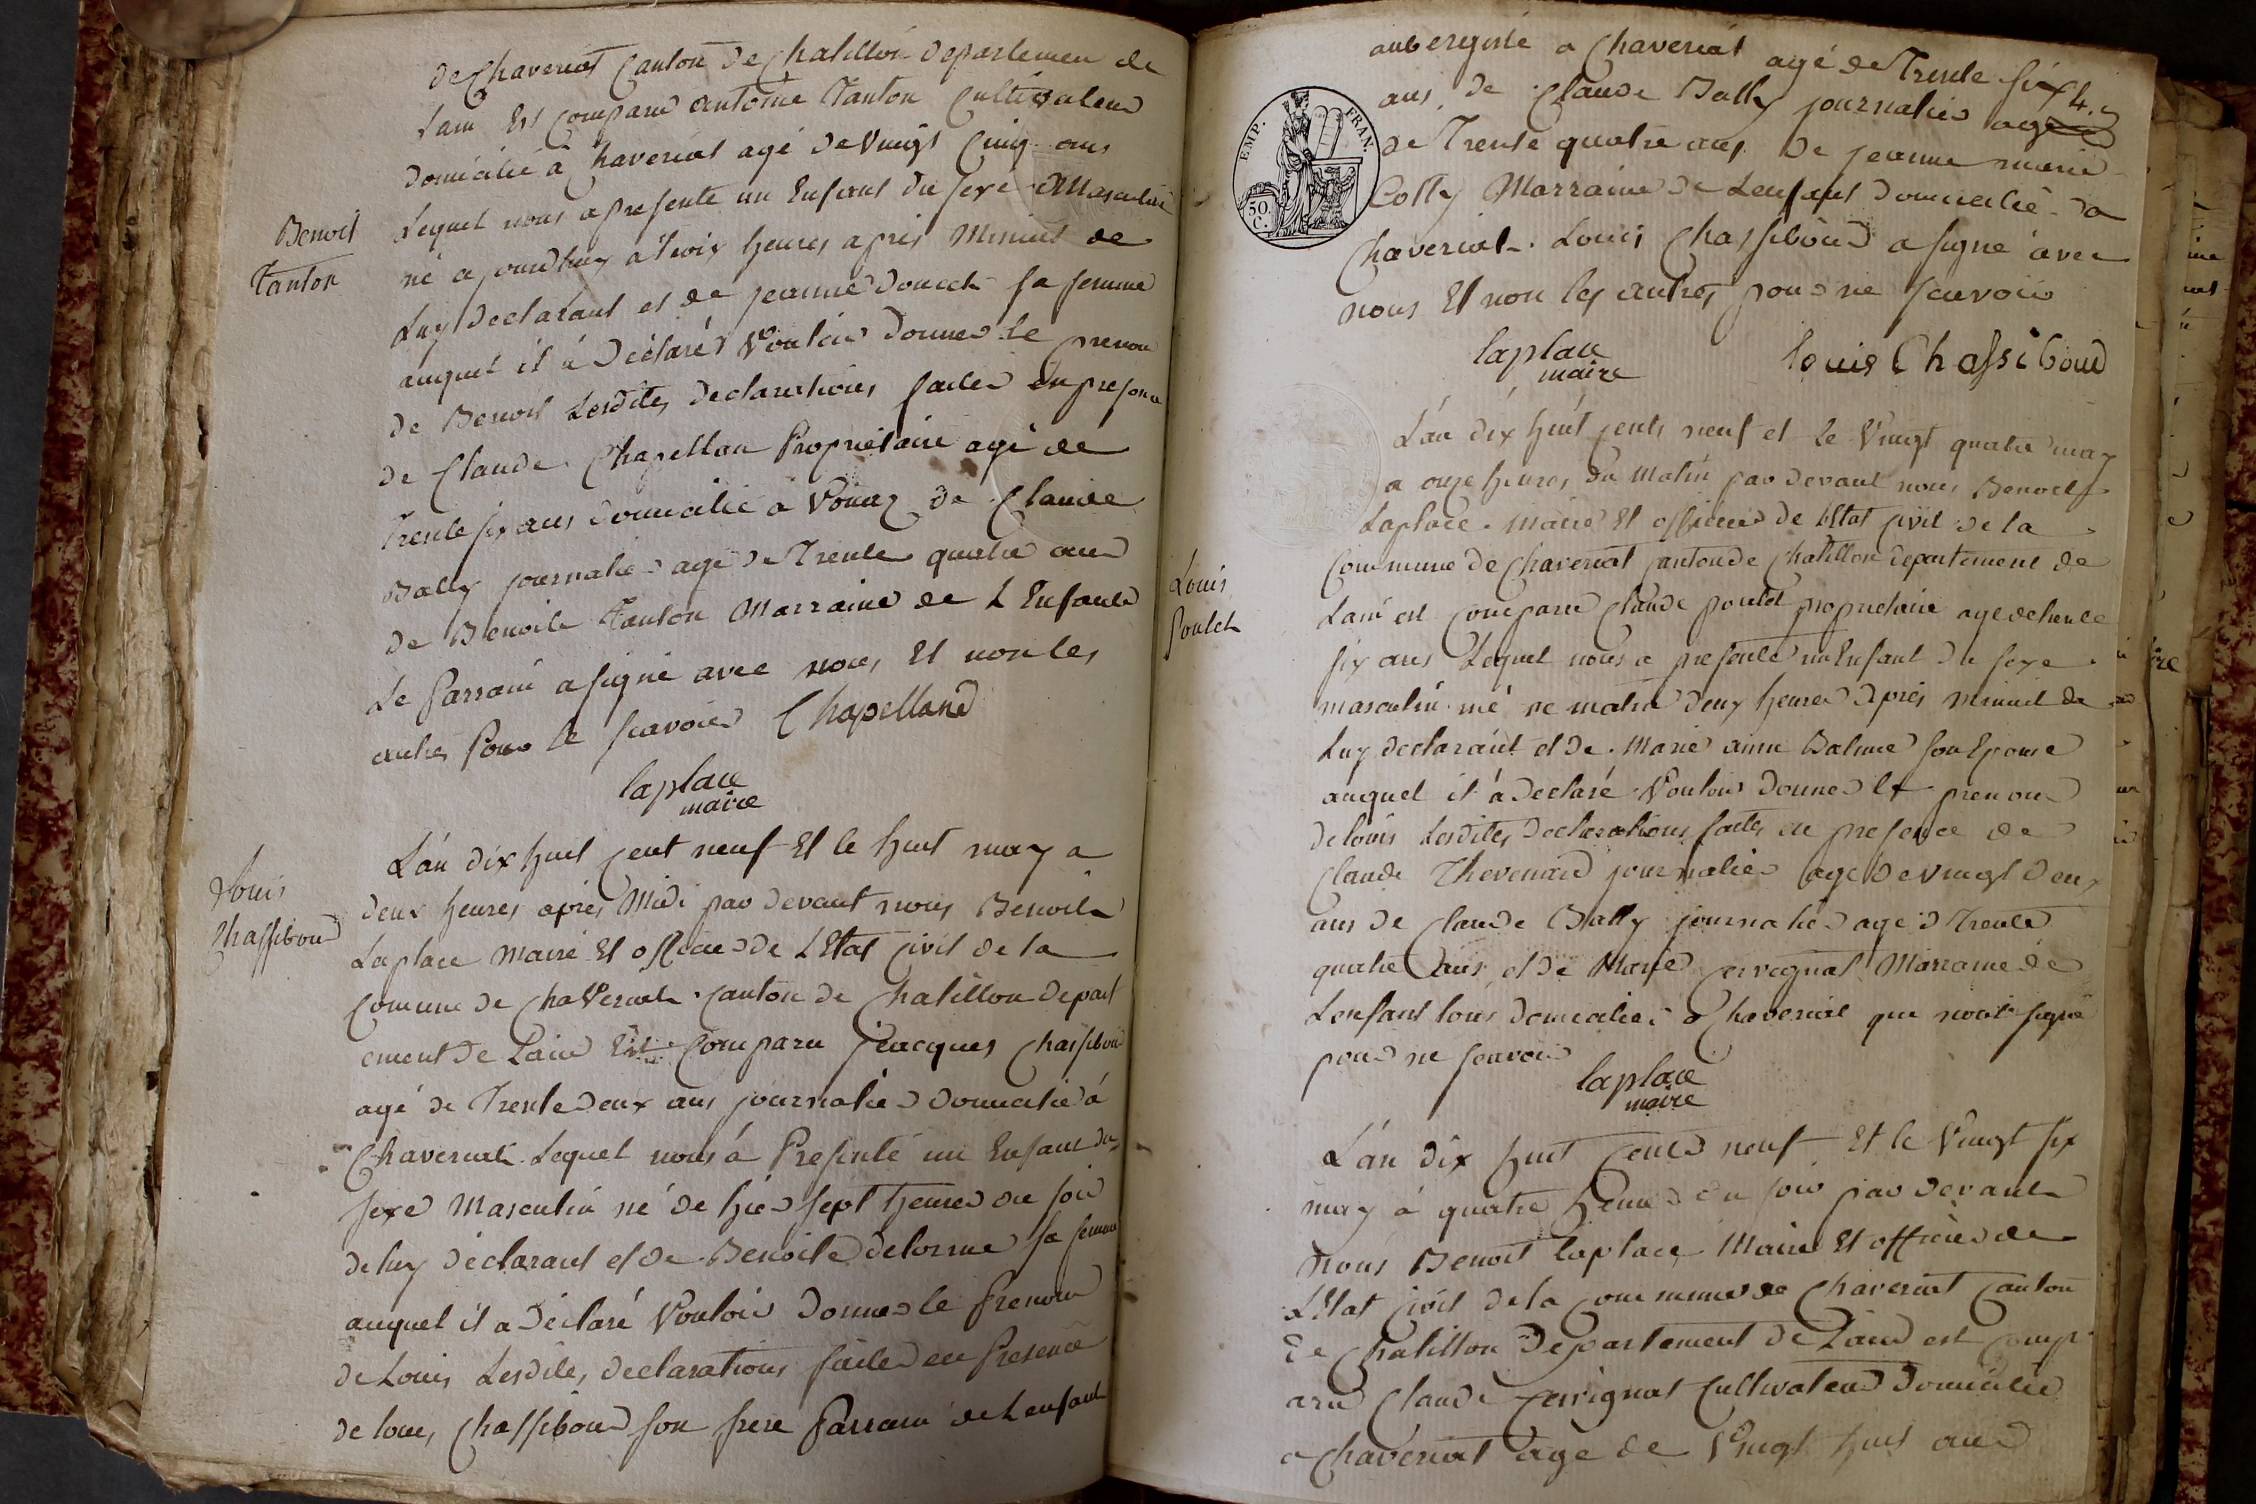 de Chaveriat Canton de Chatillon departemen de
Lain Est Comparu antoine Tanton Cultivateur
domicilié à Chaveriat agé de Vingt Cinq ans
Lequel nous a presenté un Enfant du sexe Masculin
Benoit
Tanton
né ajourdhuy à trois heures apres Minuit de
Luy declarant et de jeanne Doucet sa femme
auquel il à Déclaré Vouloir donner le prenom
de Benoit Lesdites declarations faites En presence
de Claude Chapellon Proprietaire agé de
Trente six ans domicilié à Vonnaz de Claude
Bally journalier agé de Trente quatre ans
de Benoite Tanton Marraine de L Enfant
Le Parrain a signé avec nous Et non les
autres Pour le scavoir Chapelland
laplace
maire
L'an dix huit cent neuf Et le huit may a
Louis
Chassiboud
deux heures après Midi par devant nous Benoit
Laplace Maire Et officier de L'Etat Civil de la
Comune de ChaVeriat Canton de Chatillon depart
ement de Lain Est Comparu jacques Chassiboud
agé de Trente deux ans journalier Domicilié à
Chaveriat Lequel nous à Presenté un Enfant du
sexe Masculin né de hier sept heures du soir
de luy déclarant et de Benoite delorme sa femme
auquel il a Déclaré Vouloir Donner le Prenom
de Louis Lesdites declarations faites en Presence
de Louis Chassiboud son frere Parrain de Lenfant
aubergiste a Chaveriat agé de Trente six
4.
ans, de Claude Bally journalier agé
de Trente quatre ans De jeanne marie
Colly Marraine de Lenfant domicilié a
Chaveriat. Louis Chassiboud a signé avec
nous Et non les autres pour ne scavoir
laplace
maire
louis Chassiboud
EMP. FRAN.
50
C.
L'an dix huit cents neuf et le Vingt quatre may
a onze heures du Matin par devant nous Benoit
Laplace Maire Et officier de lEtat Civil de la
Commune de Chaveriat Canton de Chatillon departement de
Louis
Poulet
Lain est Comparu Claude poulet proprietaire agé de trente
six ans Lequel nous a presenté un Enfant du sexe
masculin né ce matin deux heures après Minuit de
Luy declarant et de Marie anne Balme son Epouse
auquel il à declaré Vouloir donner le prenom
de louis Lesdites declarations faites en presence de
Claude Thevenard journalier agé de vingt deux
ans de Claude Bally journalier agé de Trente
quatre ans et de Marie Marraine de
Lenfant tous domiciliés a Chaveriat qui nont signé
pour ne scavoir
laplace
maire
L'an dix huit cents neuf Et le Vingt six
may à quatre heures du soir par devant
nous Benoit laplace Maire Et officier de
LEtat Civil de la Commune de Chaveriat Canton
de Chatillon Departement de Lain est Comp
aru Claude Cultivateur Domicilié
a Chaveriat agé de Vingt huit ans